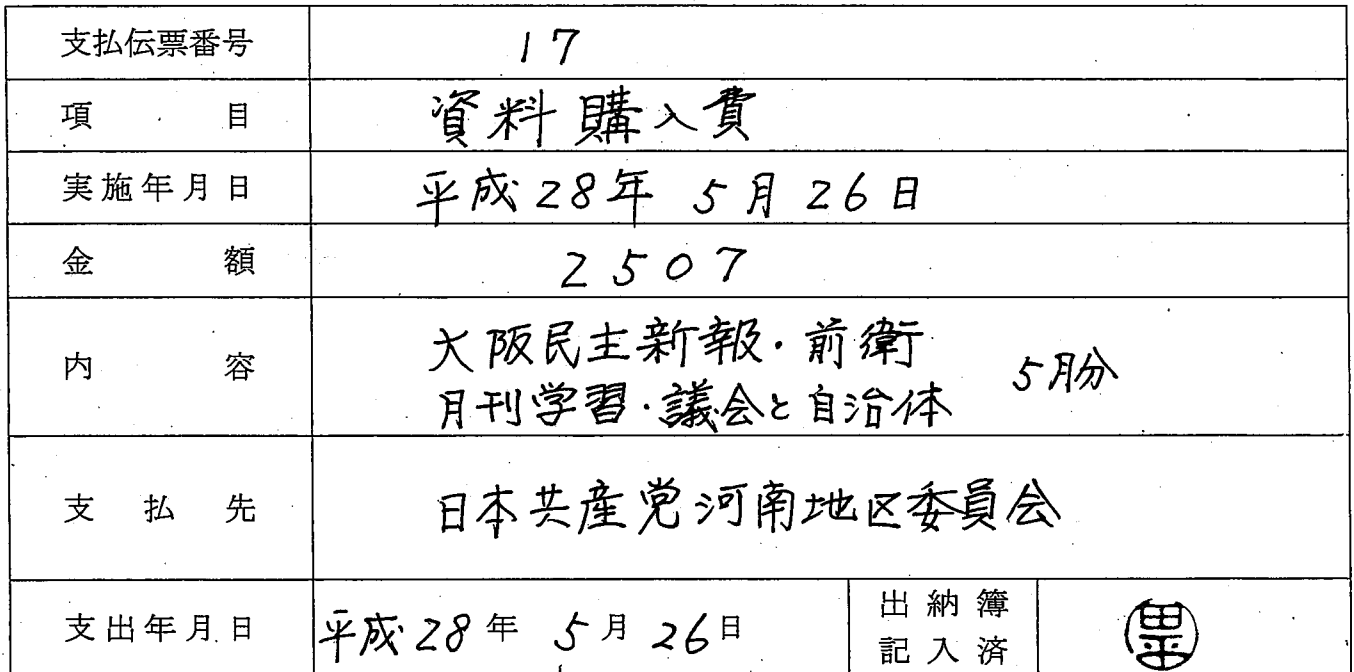 支払伝票番号 17
項目 資料購入費
実施年月日 平成28年 5月26日
金額 2507
内容 大阪民主新報・前衛
月刊学習・議会と自治体 5月分
支払先 日本共産党河南地区委員会
支出年月日 平成28年 5月26日 出納簿
記入済